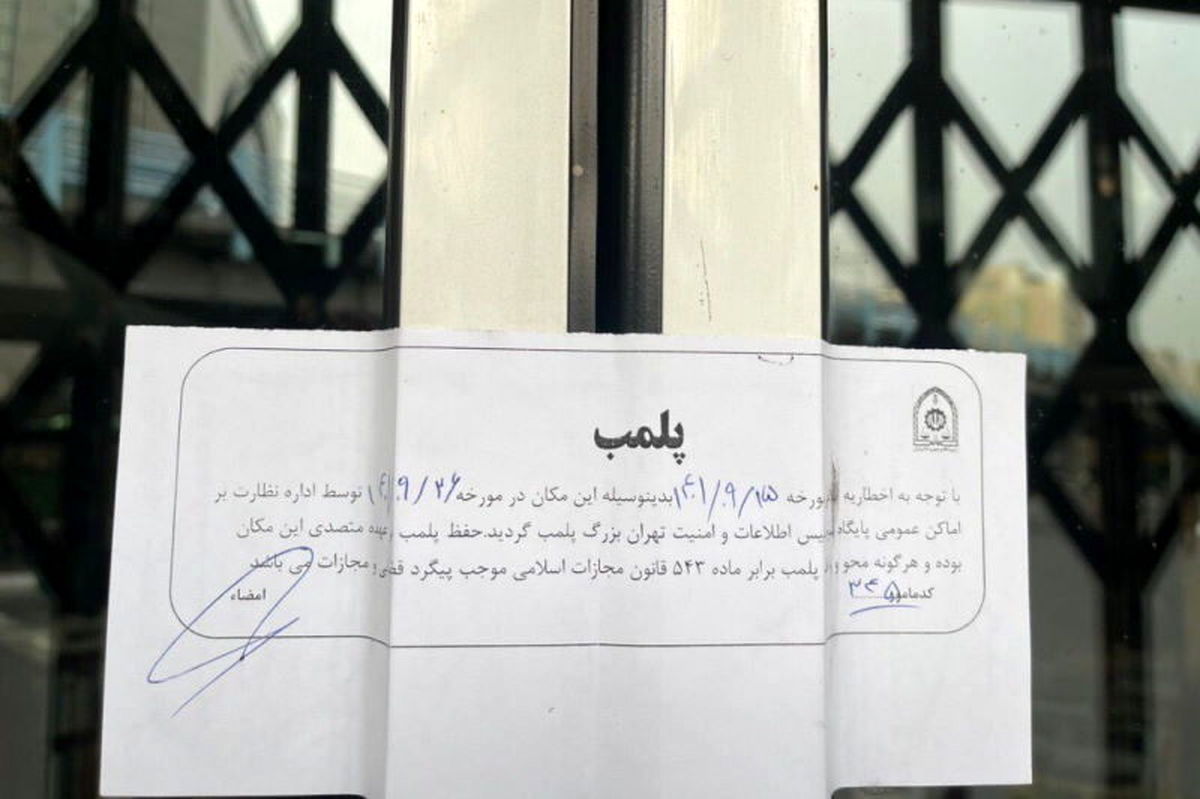 پلمب
با توجه به اخطاریه مورخه ۱۴۰۱/۰۹/۲۵ بدینوسیله این مکان در مورخه ۱۴۰۱/۹/۲۶ توسط اداره نظارت بر
اماکن عمومی پایگاه پلیس اطلاعات و امنیت تهران بزرگ پلمب گردید.حفظ پلمب بعهده متصدی این مکان
بوده و هرگونه محو و پلمب برابر ماده ۵۴۳ قانون مجازات اسلامی موجب پیگرد و مجازات می باشد
کدمامور ۳۴۵
امضاء